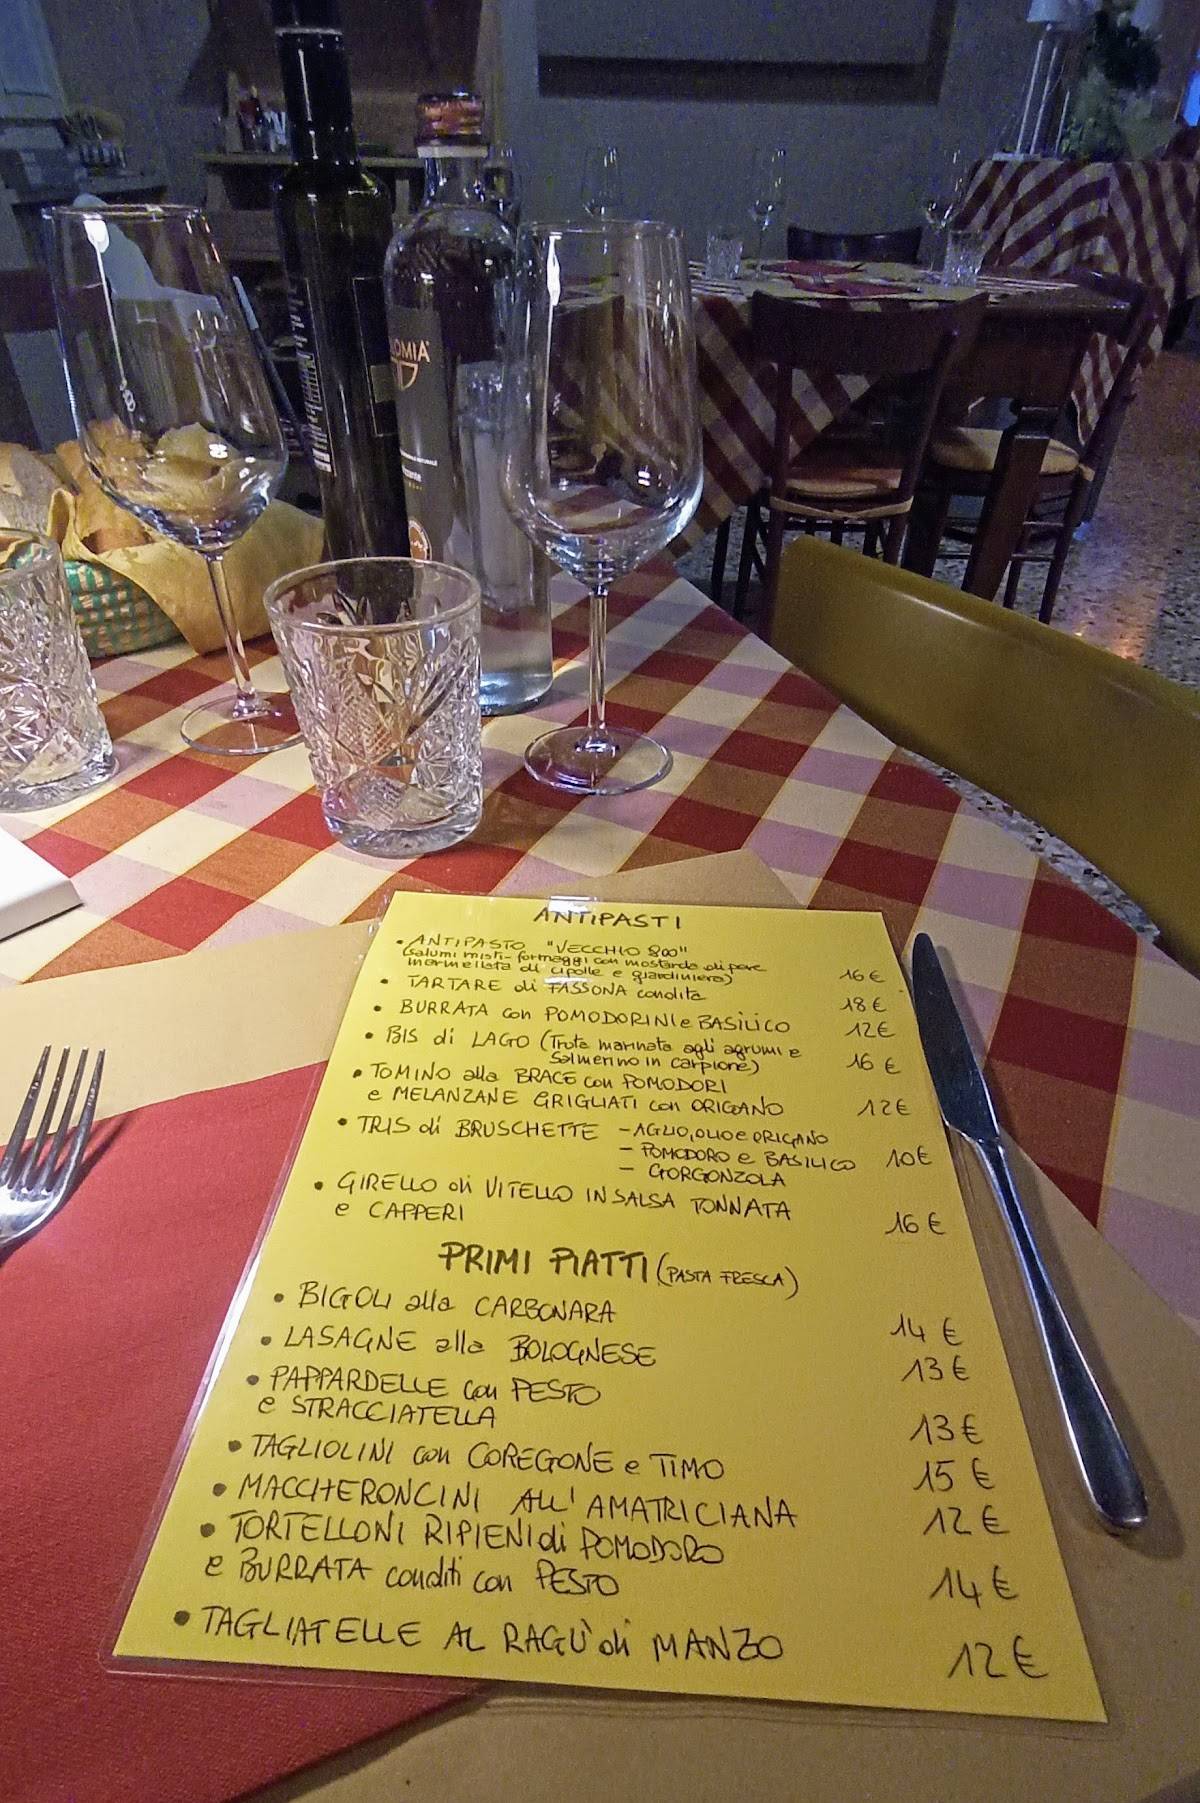 LOMIA
ANTIPASTI
• ANTIPASTO "VECCHIO 800"
(salumi misti - formaggi con mostarda di pere
marmellata di cipolle e giardiniera) 16 €
• TARTARE di FASSONA condita 18 €
• BURRATA con POMODORINI e BASILICO 12 €
• BIS di LAGO (Trota marinata agli agrumi e
Salmerino in carpione) 16 €
• TOMINO alla BRACE con POMODORI
e MELANZANE GRIGLIATI con ORIGANO 12 €
• TRIS di BRUSCHETTE - AGLIO, OLIO e ORIGANO
- POMODORO e BASILICO 10 €
- GORGONZOLA
• GIRELLO di VITELLO IN SALSA TONNATA
e CAPPERI 16 €
PRIMI PIATTI (PASTA FRESCA)
• BIGOLI alla CARBONARA 14 €
• LASAGNE alla BOLOGNESE 13 €
• PAPPARDELLE con PESTO
e STRACCIATELLA 13 €
• TAGLIOLINI con COREGONE e TIMO 15 €
• MACCHERONCINI ALL'AMATRICIANA 12 €
• TORTELLONI RIPIENI di POMODORO
e BURRATA conditi con PESTO 14 €
• TAGLIATELLE AL RAGÙ di MANZO 12 €